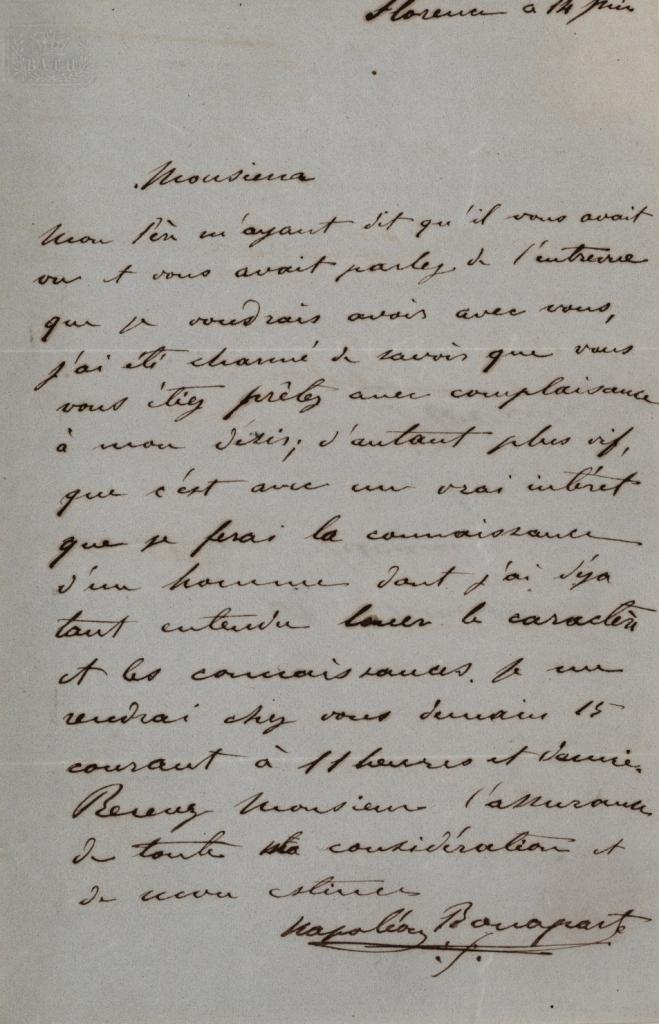 Florence ce 14 juin
BATH
Monsieur
Mon Père m'ayant dit qu'il vous avait
vu et vous avait parlez de l'entrevue
que je voudrais avoir avec vous,
j'ai été charmé de savoir que vous
vous étiez prêtez avec complaisance
à mon désir; d'autant plus vif,
que c'est avec un vrai intéret
que je ferai la connaissance
d'un homme dont j'ai déja
tant entendu louer le caractère
et les connaissances. je me
rendrai chez vous demain 15
courant à 11 heures et demie.
Recevez Monsieur l'assurance
de toute ma considération et
de mon estime
Napoléon Bonaparte